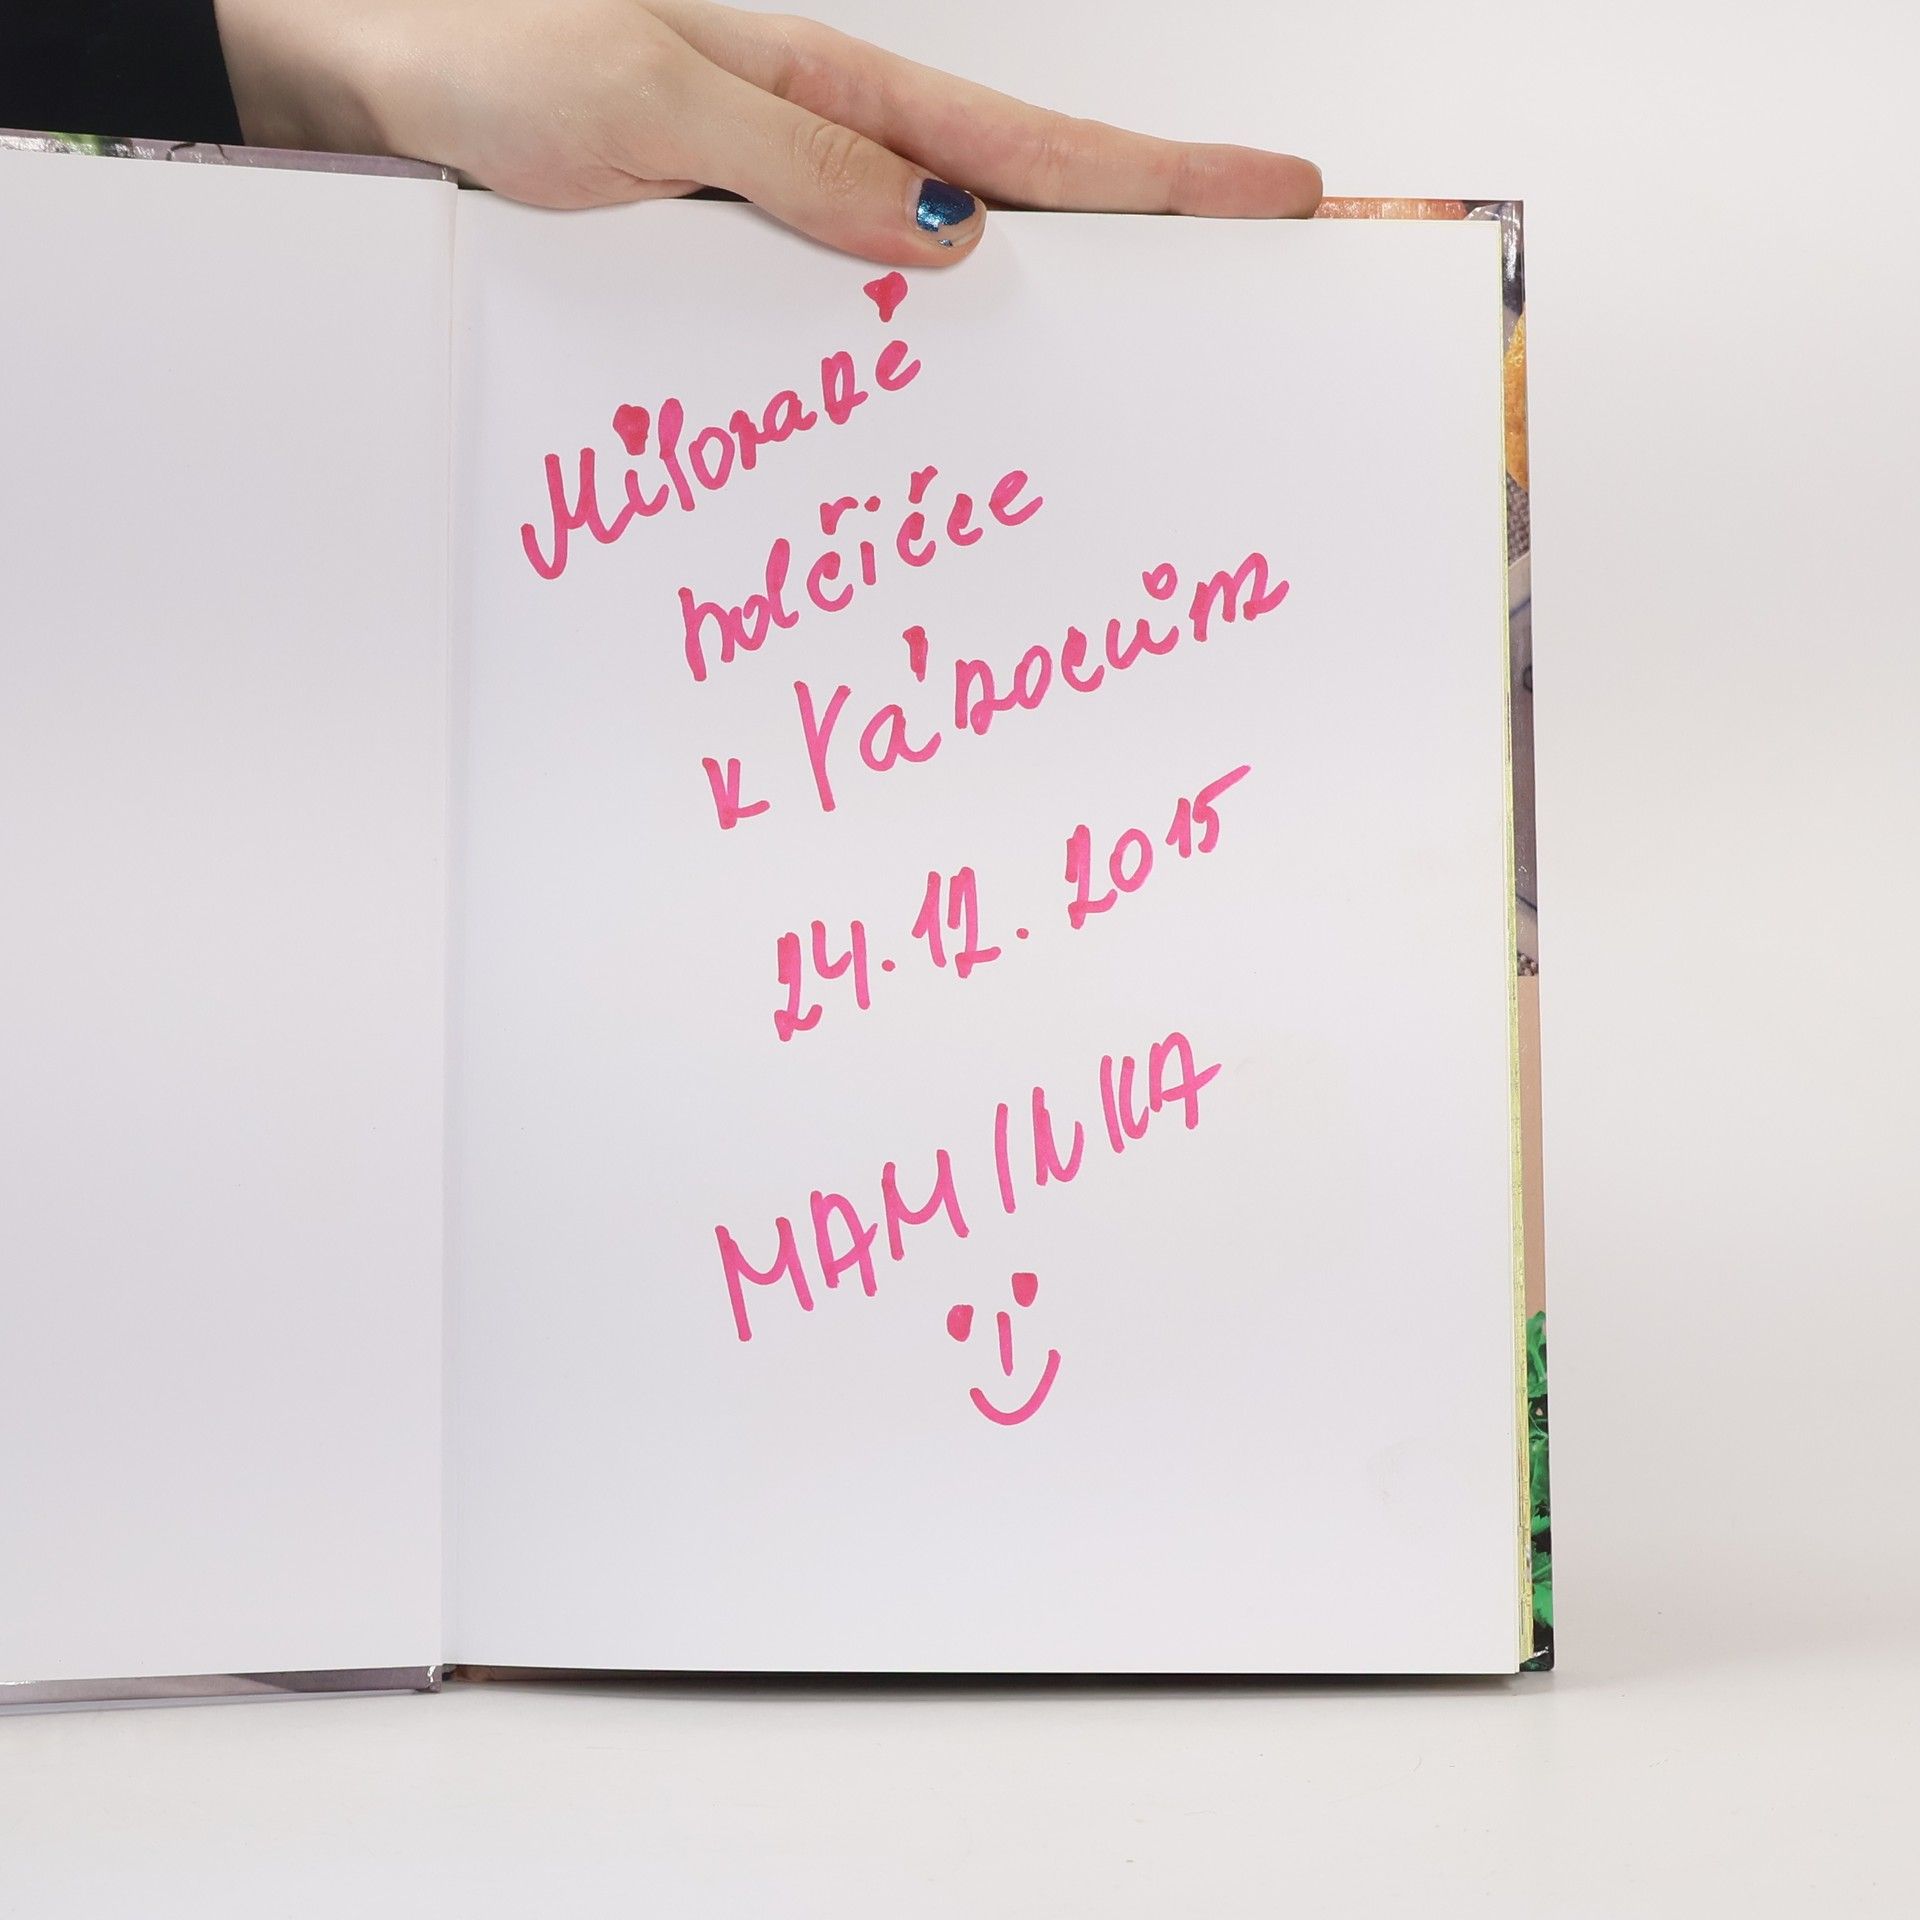 Milované
holčičce
k Vánocům
24.12.2015
MAMINKA